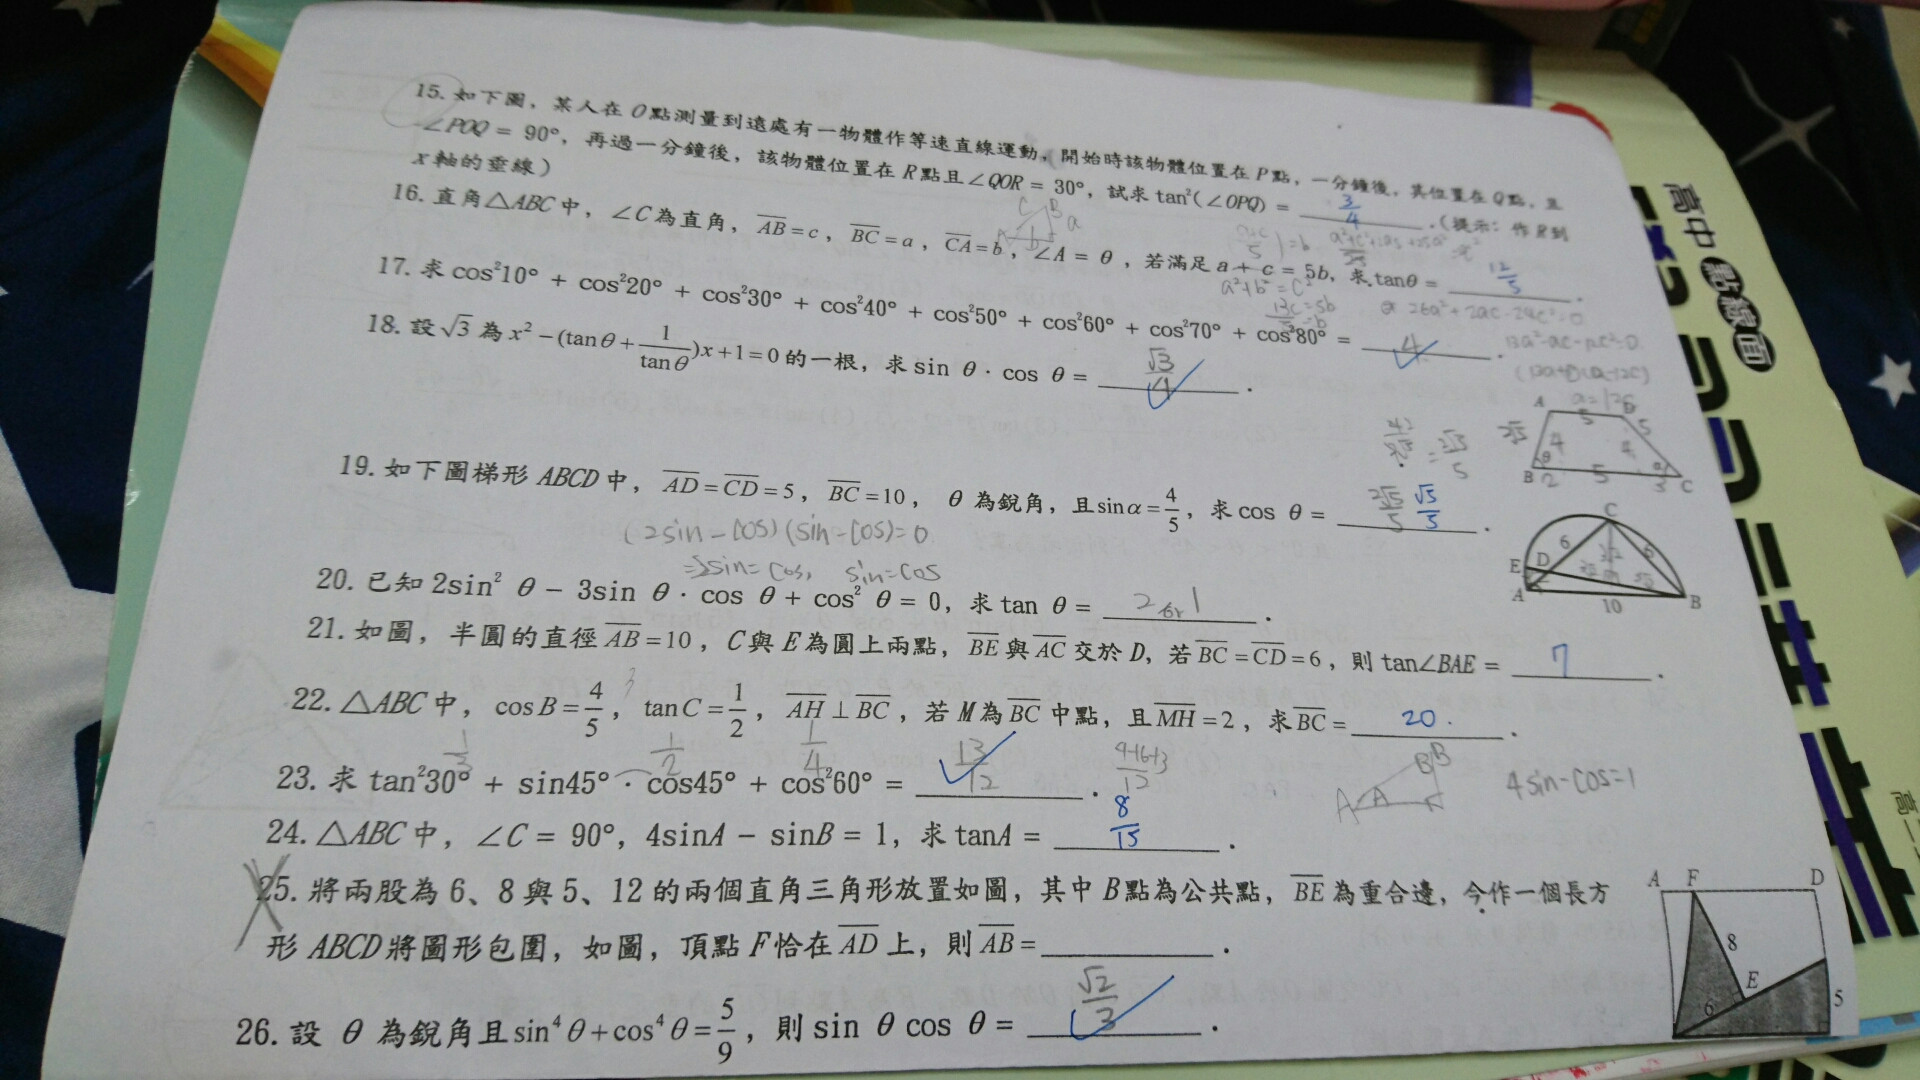 15. 如下圖，某人在O點測量到遠處有一物體作等速直線運動，開始時該物體位置在P點，一分鐘後，其位置在Q點，且
∠POQ = 90°，再過一分鐘後，該物體位置在R點且∠QOR = 30°，試求 tan²(∠OPQ) = 3/4 .（提示：作R到
x軸的垂線）
16. 直角△ABC中，∠C為直角，AB=c，BC=a，CA=b，∠A = θ，若滿足 a + c = 5b，求 tanθ = 12/5 .
C B a b
a²+b²=c²
13c=5b
17. 求 cos²10° + cos²20° + cos²30° + cos²40° + cos²50° + cos²60° + cos²70° + cos²80° = 4 .
26a²+2ac-24c²=0
13a²-ac-12c²=0
18. 設√3為x²-(tanθ+1/tanθ)x+1=0的一根，求sin θ · cos θ = √3/4 .
19. 如下圖梯形ABCD中，AD=CD=5，BC=10， θ 為銳角，且sinα=4/5，求 cos θ = 2√5/5 √5/5 .
A 5 5 2√5 4 4 θ α B 2 5 3 C
(2sin-cos)(sin-cos)=0
=2sin=cos, sin=cos
20. 已知 2sin² θ - 3sin θ · cos θ + cos² θ = 0，求 tan θ = 2 or 1 .
C 6 6 E D A 10 B
21. 如圖，半圓的直徑AB=10，C與E為圓上兩點，BE與AC交於D，若BC=CD=6，則tan∠BAE = 7 .
22. △ABC中，cosB=4/5，tanC=1/2，AH⊥BC，若M為BC中點，且MH=2，求BC= 20 .
1/3 1/2 1/4
23. 求 tan²30° + sin45° · cos45° + cos²60° = 13/12 .
4+6+3/12
A A B B
4sin-cos=1
24. △ABC中，∠C = 90°，4sinA - sinB = 1，求 tanA = 8/15 .
25. 將兩股為6、8與5、12的兩個直角三角形放置如圖，其中B點為公共點，BE為重合邊，今作一個長方
形ABCD將圖形包圍，如圖，頂點F恰在AD上，則AB= .
A F D 8 E 6 5
26. 設 θ 為銳角且sin⁴θ+cos⁴θ=5/9，則 sin θ cos θ = √2/3 .
高中
點線面